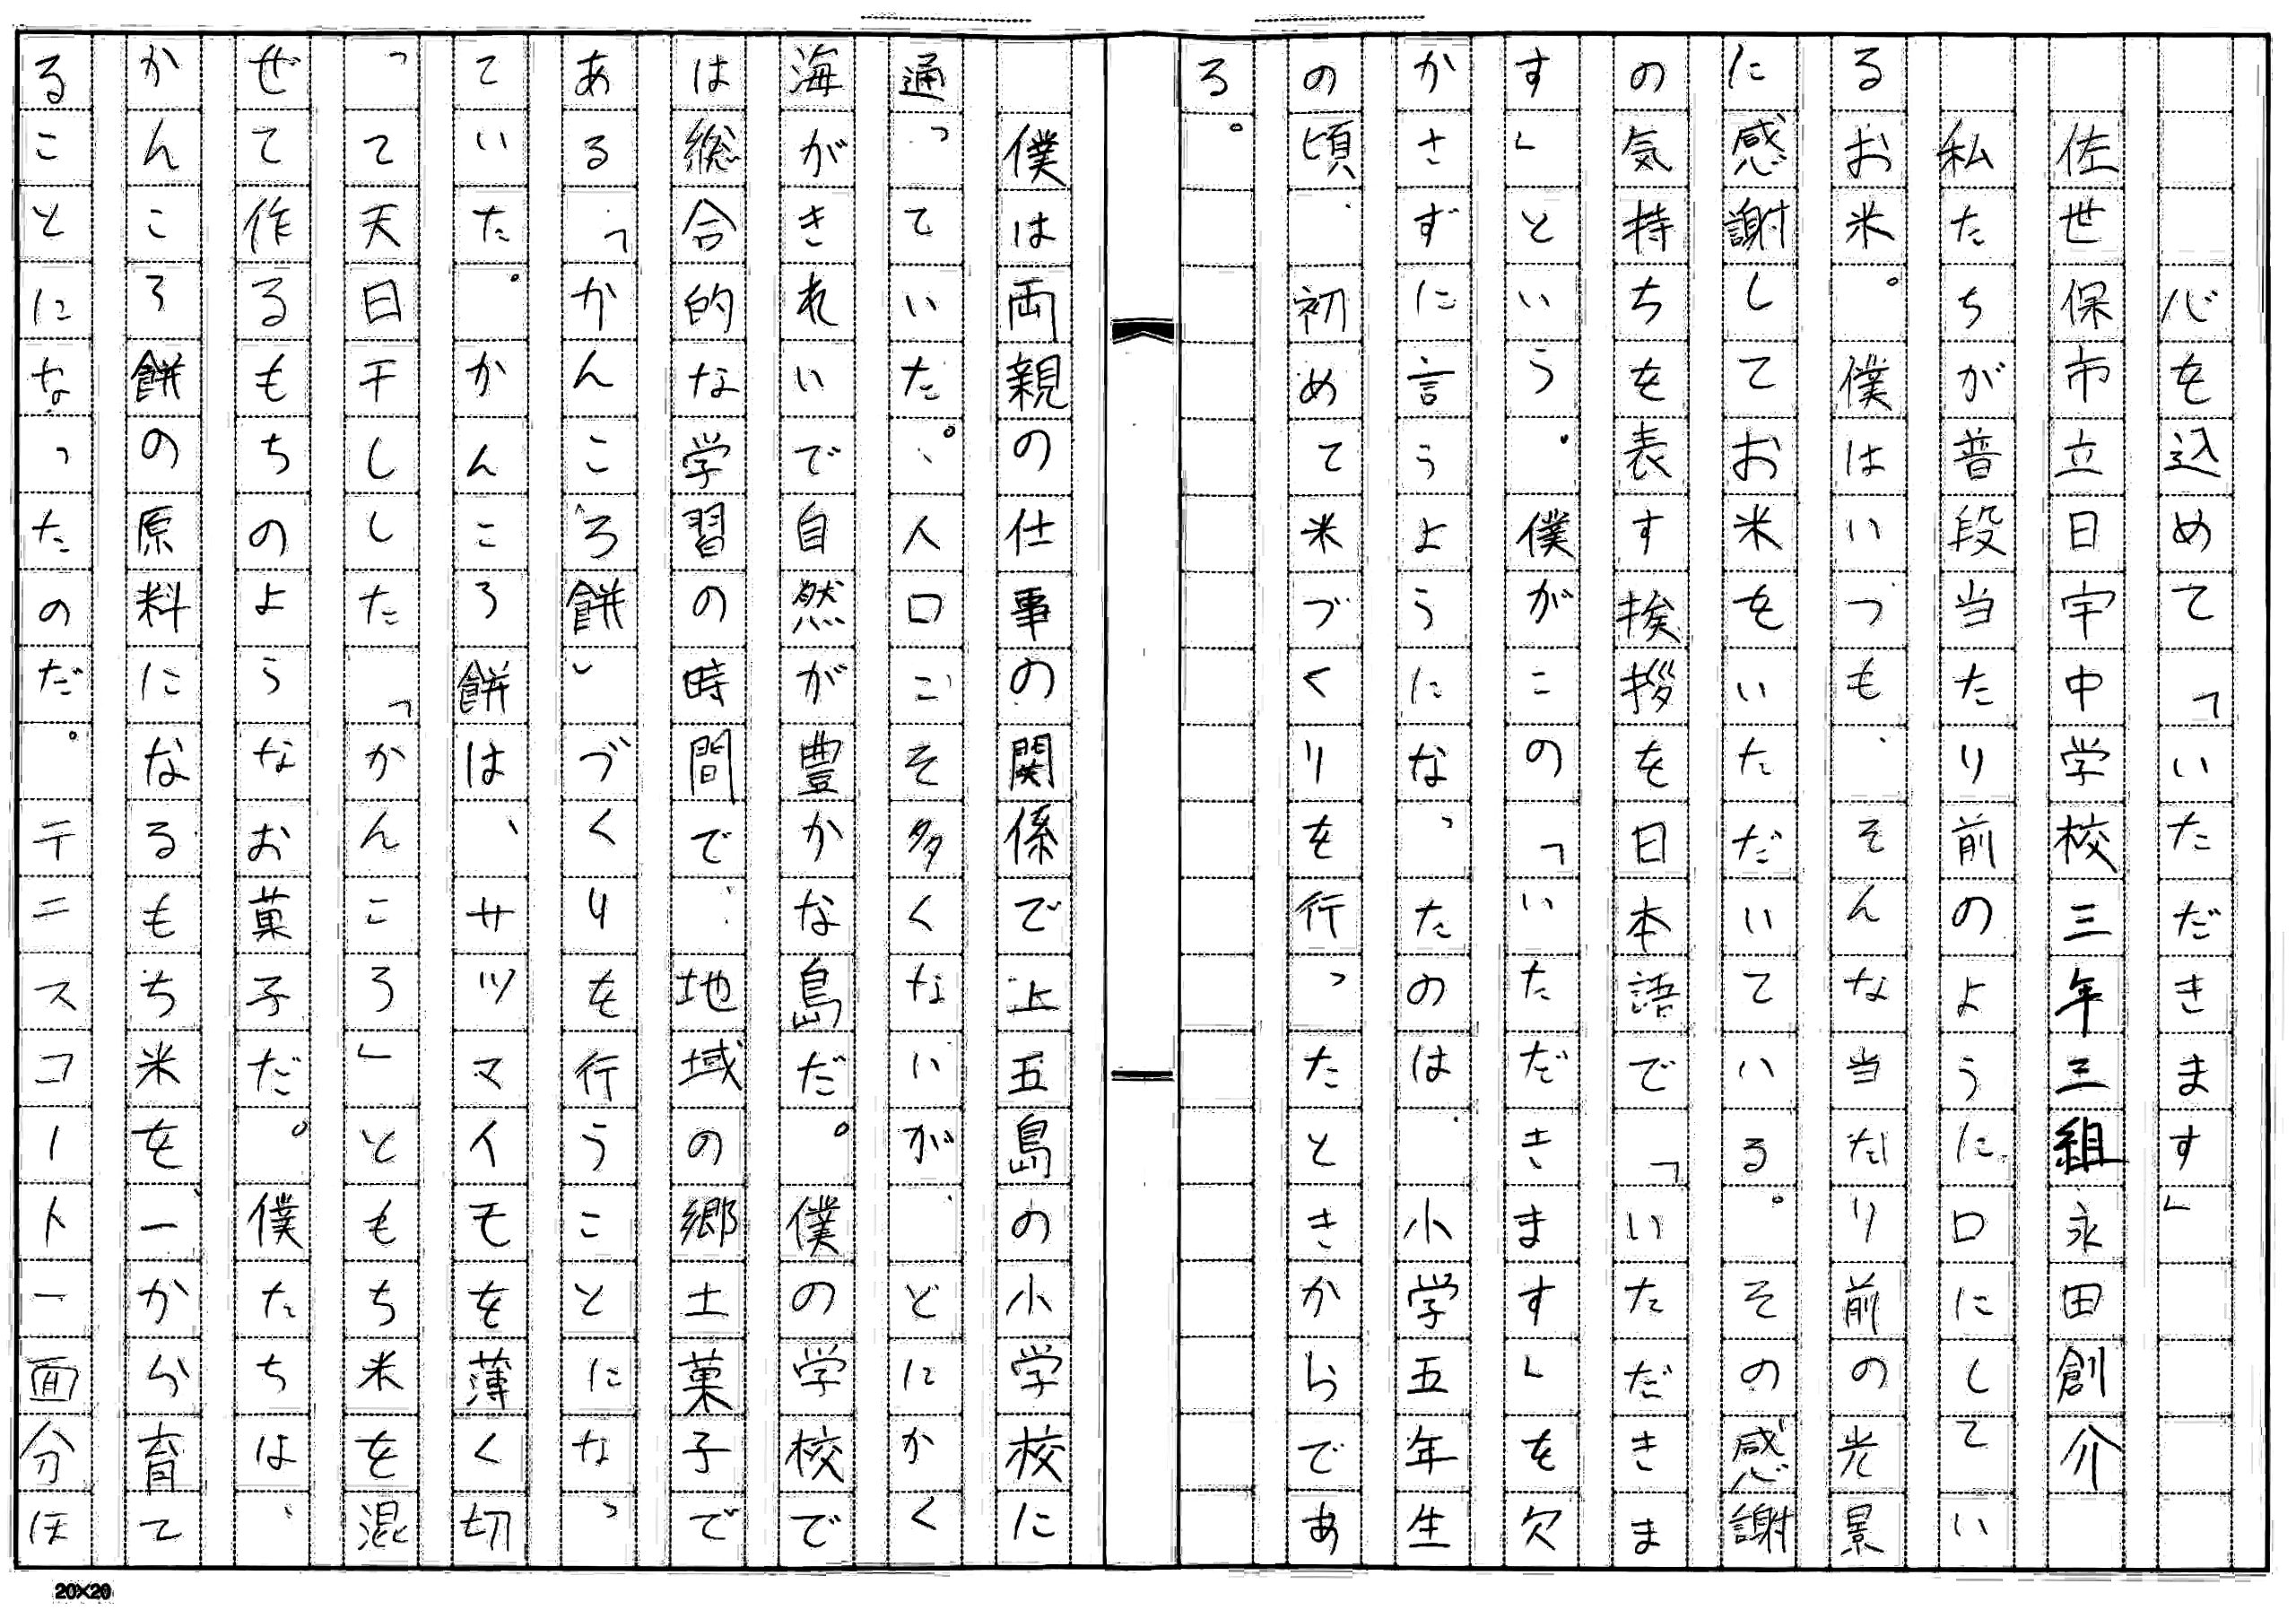 心を込めて「いただきます」
佐世保市立日宇中学校三年三組永田創介
私たちが普段当たり前のように口にしてい
るお米。僕はいつも、そんな当たり前の光景
に感謝してお米をいただいている。その感謝
の気持ちを表す挨拶を日本語で「いただきま
す」という。僕がこの「いただきます」を欠
かさずに言うようになったのは、小学五年生
の頃、初めて米づくりを行ったときからであ
る。
僕は両親の仕事の関係で上五島の小学校に
通っていた。人口こそ多くないが、とにかく
海がきれいで自然が豊かな島だ。僕の学校で
は総合的な学習の時間で、地域の郷土菓子で
ある「かんころ餅」づくりを行うことになっ
ていた。かんころ餅は、サツマイモを薄く切
って天日干しした「かんころ」ともち米を混
ぜて作るもちのようなお菓子だ。僕たちは、
かんころ餅の原料になるもち米を、一から育て
ることになったのだ。テニスコート一面分ほ
20×20